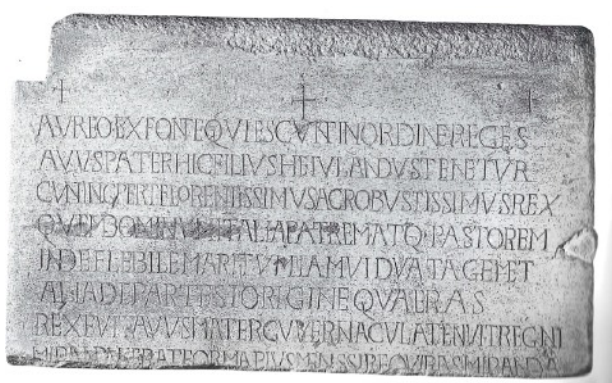 + + +
AVREO EX FONTE QVIESCVNT IN ORDINE REGES
AVVS PATER HIC FILIVS HEIVLANDVS TENETVR
CVNINGPERT FLORENTISSIMVS AC ROBVSTISSIMVS REX
QVEM DOMINVM ITALIA PATREM ATQ· PASTOREM
INDE FLEBILE MARITVM IAM VIDVATA GEMET
ALIA DE PARTE SI ORIGINE QVAERAS
REX FVIT AVVS MATER GVBERNACVLA TENVIT REGNI
MIRANDVS ERAT FORMA PIVS MENS SI REQVIRAS MIRANDA